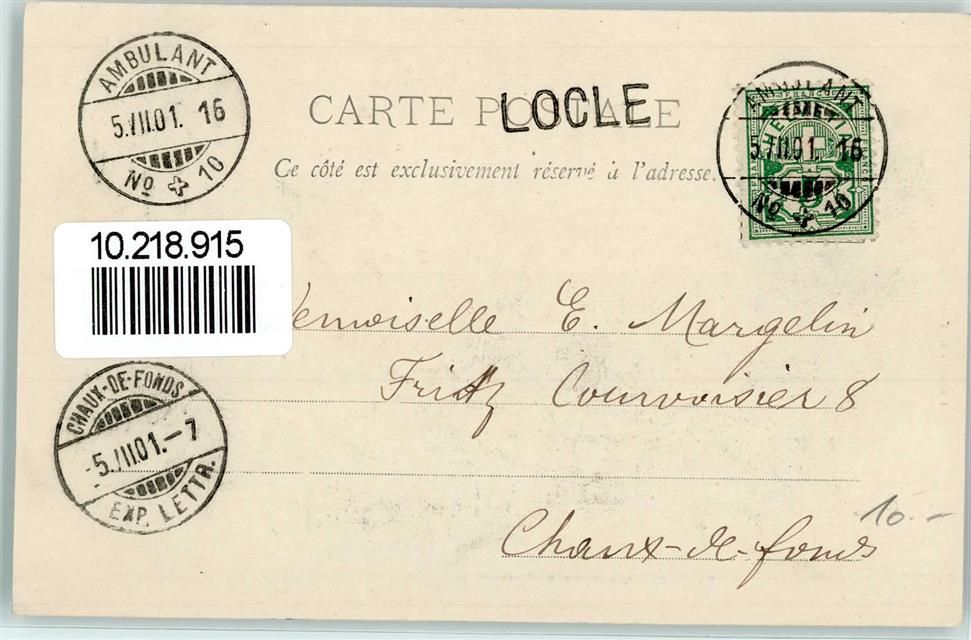 AMBULANT
5.VII.01. 16
No 10
CARTE POSTALE
LOCLE
Ce côté est exclusivement réservé à l'adresse.
FRANCO
HELVETIA
5
AMBULANT
5.VII.01. 16
No 10
10.218.915
emoiselle E. Margelin
Fritz Courvoisier 8
CHAUX-DE-FONDS
-5.VII.01.-7
EXP. LETTR.
10.-
Chaux-de-fonds